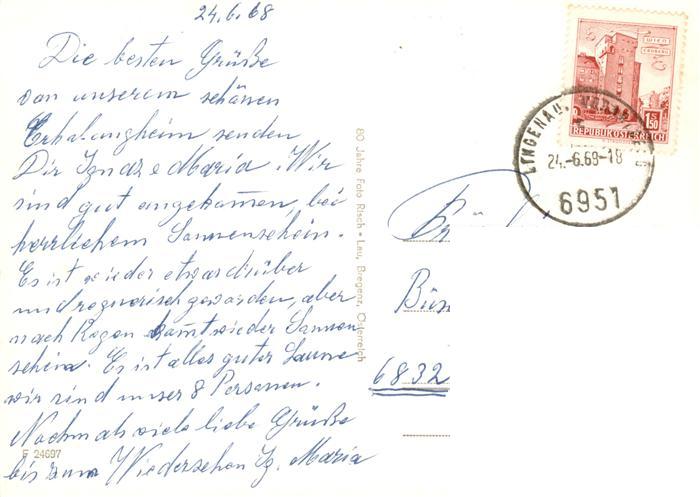 24.6.68
Die besten Grüße
von unserem schönen
Erholungheim senden
Dir Ignaz e Maria. Wir
sind gut angekommen, bei
herrlichem Sonnenschein.
Es ist wieder etwas drüber
und regnerisch geworden, aber
nach Regen kommt wieder Sonnen
schein. Es ist alles guter Laune
wir sind unser 8 Personen.
Nochmals viele liebe Grüße
bis zum Wiedersehen Ig. Maria
F 24697
80 Jahre Foto Risch - Lau, Bregenz, Österreich
WIEN
ERDBERG
1.50
S
REPUBLIK ÖSTERREICH
LINGENAU,
24.-6.68-18
6951
Bün
6832